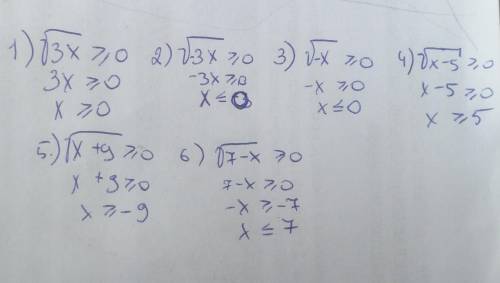 1) √3x ≥ 0
3x ≥ 0
x ≥ 0
2) √-3x ≥ 0
-3x ≥ 0
x ≤ 0
3) √-x ≥ 0
-x ≥ 0
x ≤ 0
4) √x-5 ≥ 0
x-5 ≥ 0
x ≥ 5
5.) √x+9 ≥ 0
x+9 ≥ 0
x ≥ -9
6) √7-x ≥ 0
7-x ≥ 0
-x ≥ -7
x ≤ 7